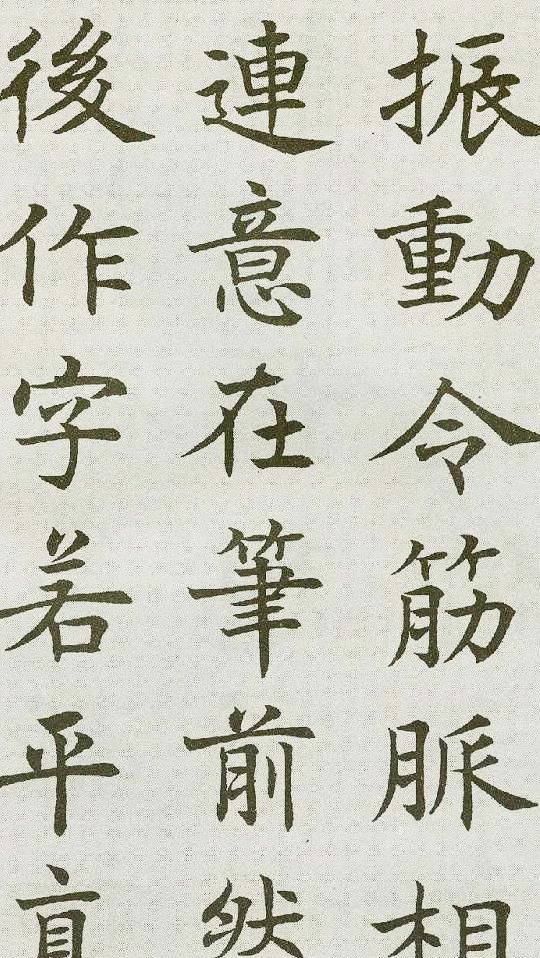 振動令筋脈相
連意在筆前然
後作字若平直